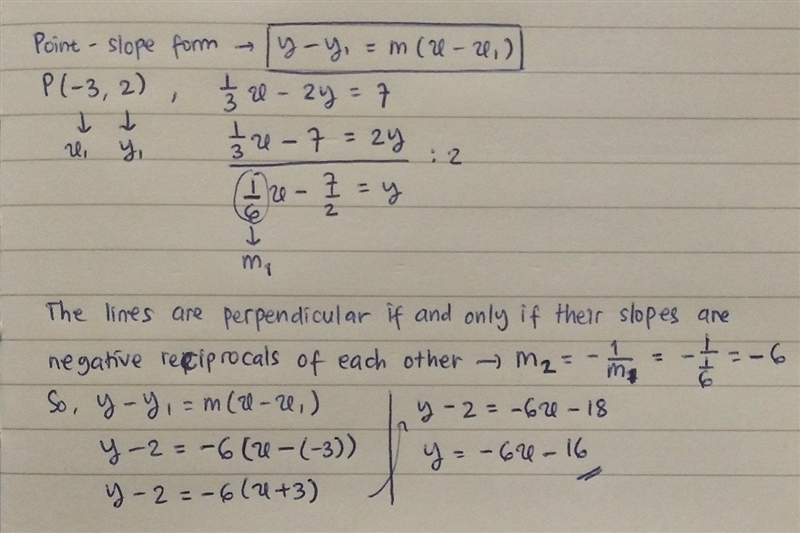 Point - slope form → y - y₁ = m (x - x₁)
P(-3, 2) , 1/3 x - 2y = 7
↓ ↓
x₁ y₁
1/3 x - 7 = 2y : 2
1/6 x - 7/2 = y
↓
m₁
The lines are perpendicular if and only if their slopes are
negative reciprocals of each other → m₂ = - 1/m₁ = - 1/(1/6) = - 6
So, y - y₁ = m(x - x₁)
y - 2 = -6(x - (-3))
y - 2 = -6(x + 3)
y - 2 = -6x - 18
y = -6x - 16